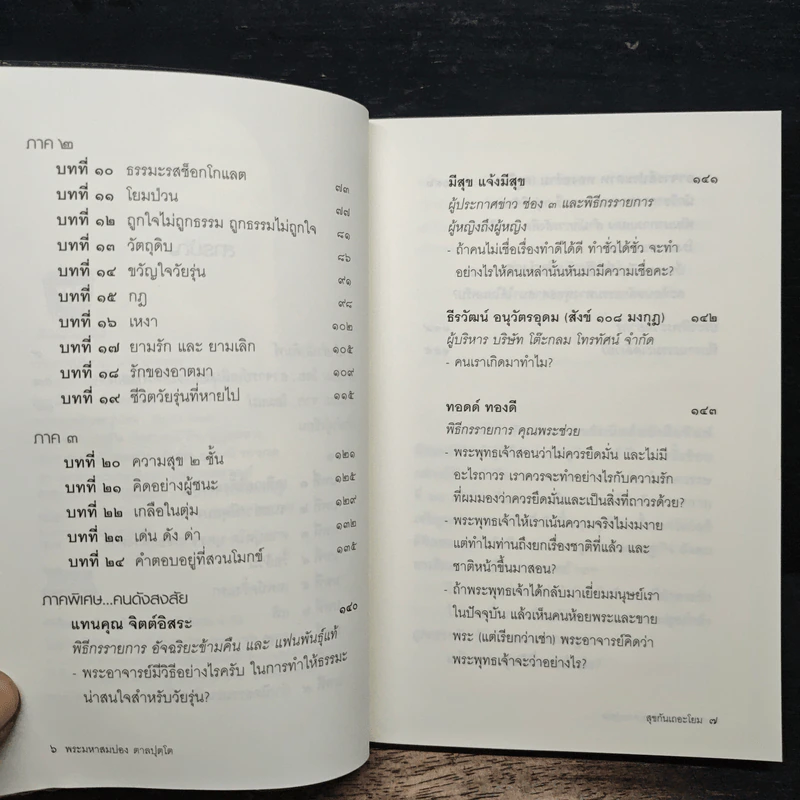 ภาค ๒
บทที่ ๑๐ ธรรมะรสช็อกโกแลต ๗๓
บทที่ ๑๑ โยมป่วน ๗๗
บทที่ ๑๒ ถูกใจไม่ถูกธรรม ถูกธรรมไม่ถูกใจ ๘๑
บทที่ ๑๓ วัตถุดิบ ๘๖
บทที่ ๑๔ ขวัญใจวัยรุ่น ๙๑
บทที่ ๑๕ กฎ ๙๘
บทที่ ๑๖ เหงา ๑๐๒
บทที่ ๑๗ ยามรัก และ ยามเลิก ๑๐๕
บทที่ ๑๘ รักของอาตมา ๑๐๙
บทที่ ๑๙ ชีวิตวัยรุ่นที่หายไป ๑๑๕
ภาค ๓
บทที่ ๒๐ ความสุข ๒ ชั้น ๑๒๑
บทที่ ๒๑ คิดอย่างผู้ชนะ ๑๒๕
บทที่ ๒๒ เกลือในตุ่ม ๑๒๙
บทที่ ๒๓ เด่น ดัง ด่า ๑๓๒
บทที่ ๒๔ คำตอบอยู่ที่สวนโมกข์ ๑๓๕
ภาคพิเศษ...คนดังสงสัย
แทนคุณ จิตต์อิสระ ๑๔๐
พิธีกรรายการ อัจฉริยะข้ามคืน และ แฟนพันธุ์แท้
- พระอาจารย์มีวิธีอย่างไรครับ ในการทำให้ธรรมะ
น่าสนใจสำหรับวัยรุ่น?
๖ พระมหาสมปอง ตาลปุตฺโต
มีสุข แจ้งมีสุข ๑๔๑
ผู้ประกาศข่าว ช่อง ๓ และพิธีกรรายการ
ผู้หญิงถึงผู้หญิง
- ถ้าคนไม่เชื่อเรื่องทำดีได้ดี ทำชั่วได้ชั่ว จะทำ
อย่างไรให้คนเหล่านั้นหันมามีความเชื่อคะ?
ธีรวัฒน์ อนุวัตรอุดม (สังข์ ๑๐๘ มงกุฎ) ๑๔๒
ผู้บริหาร บริษัท โต๊ะกลม โทรทัศน์ จำกัด
- คนเราเกิดมาทำไม?
ทอดด์ ทองดี ๑๔๓
พิธีกรรายการ คุณพระช่วย
- พระพุทธเจ้าสอนว่าไม่ควรยึดมั่น และไม่มี
อะไรถาวร เราควรจะทำอย่างไรกับความรัก
ที่ผมมองว่าควรยึดมั่นและเป็นสิ่งที่ถาวรด้วย?
- พระพุทธเจ้าให้เราเน้นความจริงไม่งมงาย
แต่ทำไมท่านถึงยกเรื่องชาติที่แล้ว และ
ชาติหน้าขึ้นมาสอน?
- ถ้าพระพุทธเจ้าได้กลับมาเยี่ยมมนุษย์เรา
ในปัจจุบัน แล้วเห็นคนห้อยพระและขาย
พระ (แต่เรียกว่าเช่า) พระอาจารย์คิดว่า
พระพุทธเจ้าจะว่าอย่างไร?
สุขกันเถอะโยม ๗